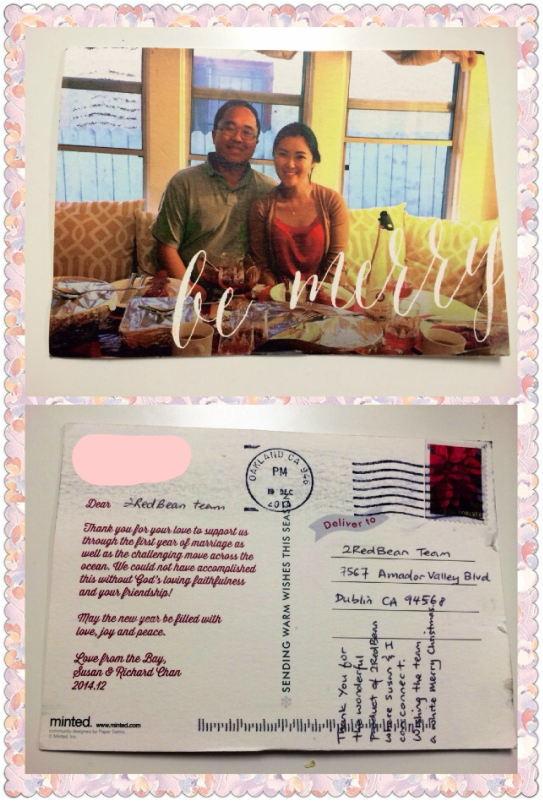 be merry
Dear 2RedBean Team
Thank you for your love to support us
through the first year of marriage as
well as the challenging move across the
ocean. We could not have accomplished
this without God's loving faithfulness
and your friendship!
May the new year be filled with
love, joy and peace.
Love from the Bay,
Susan & Richard Chan
2014.12
minted. www.minted.com
community designed by Paper Dahlia
© Minted, Inc.
SENDING WARM WISHES THIS SEASON
OAKLAND CA 946
PM
19 DEC
Deliver to
2RedBean Team
7567 Amador Valley Blvd
Dublin CA 94568
Thank You for
the wonderful
product of 2RedBean
where Susan & I
connect.
Wishing the team
a white Merry Christmas.
FOREVER